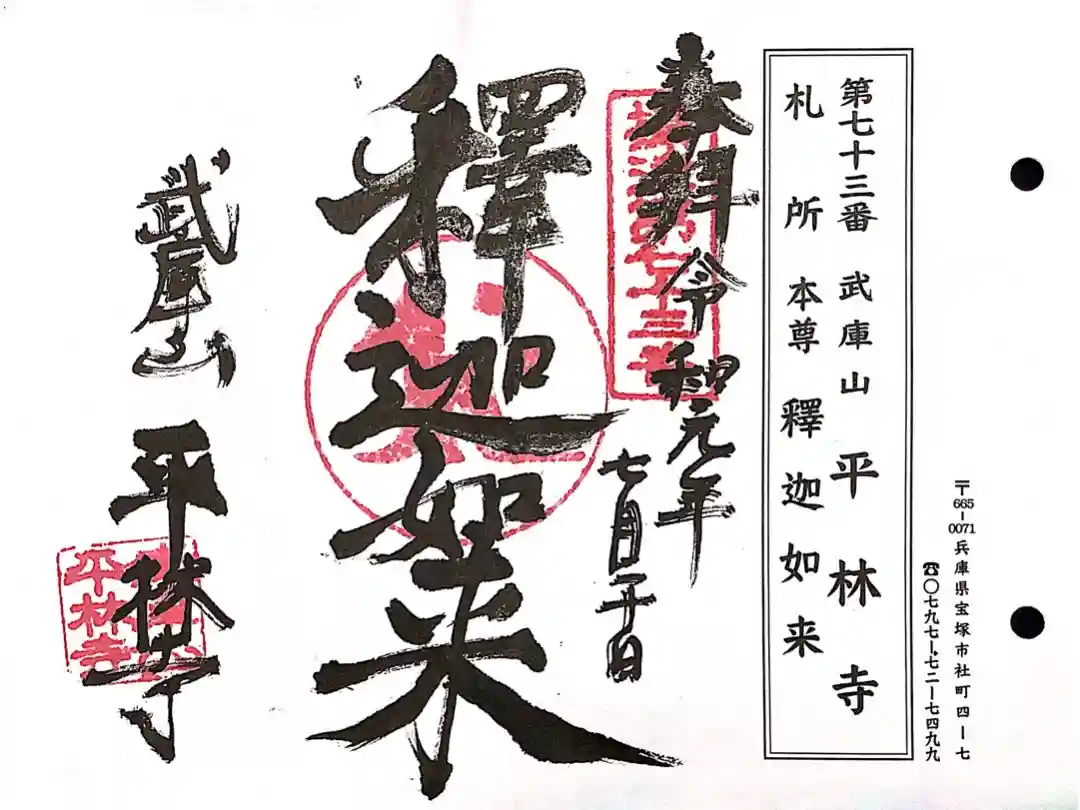 〒665-0071兵庫県宝塚市社町四ー七
☎〇七九七ー七二ー七四九九
第七十三番 武庫山 平林寺
札所 本尊 釋迦如来
奉拝 令和元年
七月二十日
釋迦如来
武庫山 平林寺
平林寺